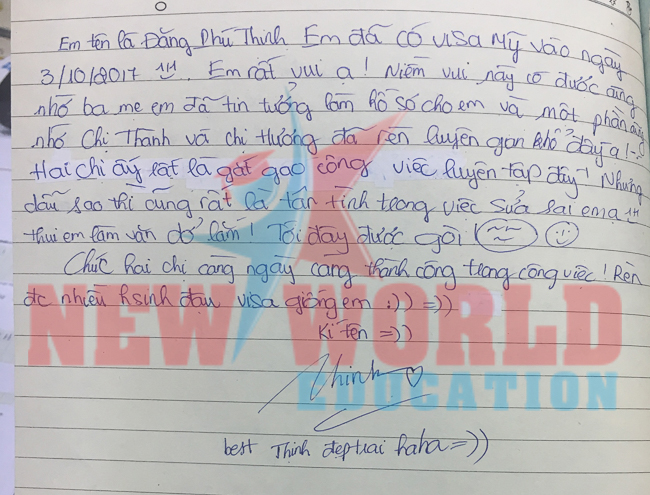 Em tên là Đặng Phú Thịnh Em đã có visa Mỹ vào ngày
3/10/2017. Em rất vui ạ! Niềm vui này có được cũng
nhờ ba mẹ em đã tin tưởng làm hồ sơ cho em và một phần
nhờ Chị Thanh và chị Hương đã rèn luyện gian khổ đấy ạ!
Hai chị ấy rất là gắt gao công việc luyện tập đấy! Nhưng
dẫu sao thì cũng rất là tận tình trong việc sửa sai em ạ
thui em làm văn dở lắm! Tới đây được gòi
Chúc hai chị càng ngày càng thành công trong công việc! Rèn
đc nhiều hsinh đậu visa giống em :)) =))
Kí tên =))
Thinh
best Thịnh đẹp trai haha =))
NEW WORLD
EDUCATION